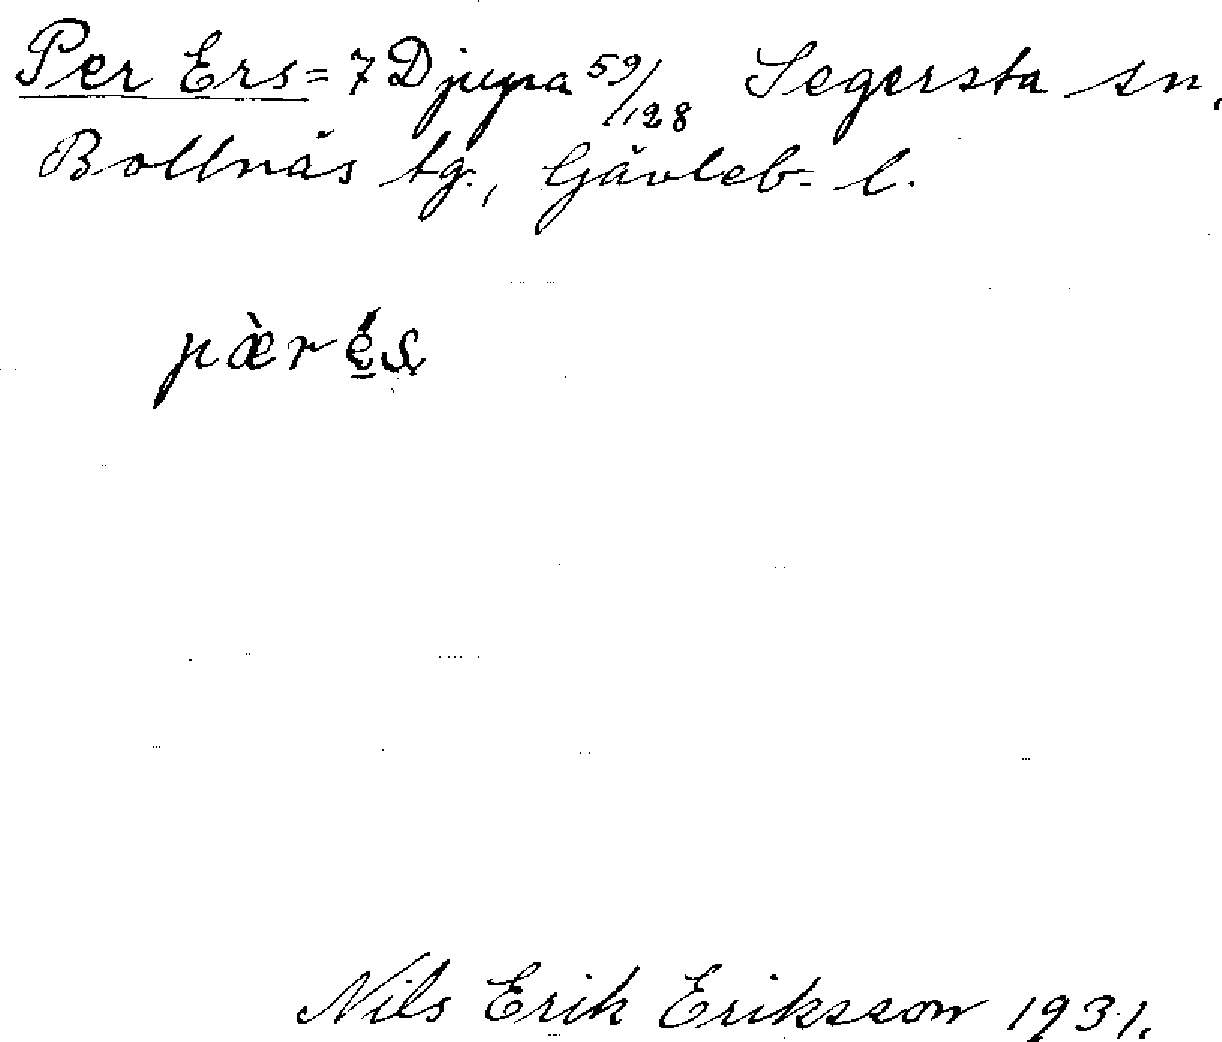 Per Ers = 7 Djupa 59/128 Segersta sn,
Bollnäs tg., Gävleb. l.
pæ̀rés
Nils Erik Eriksson 1931.